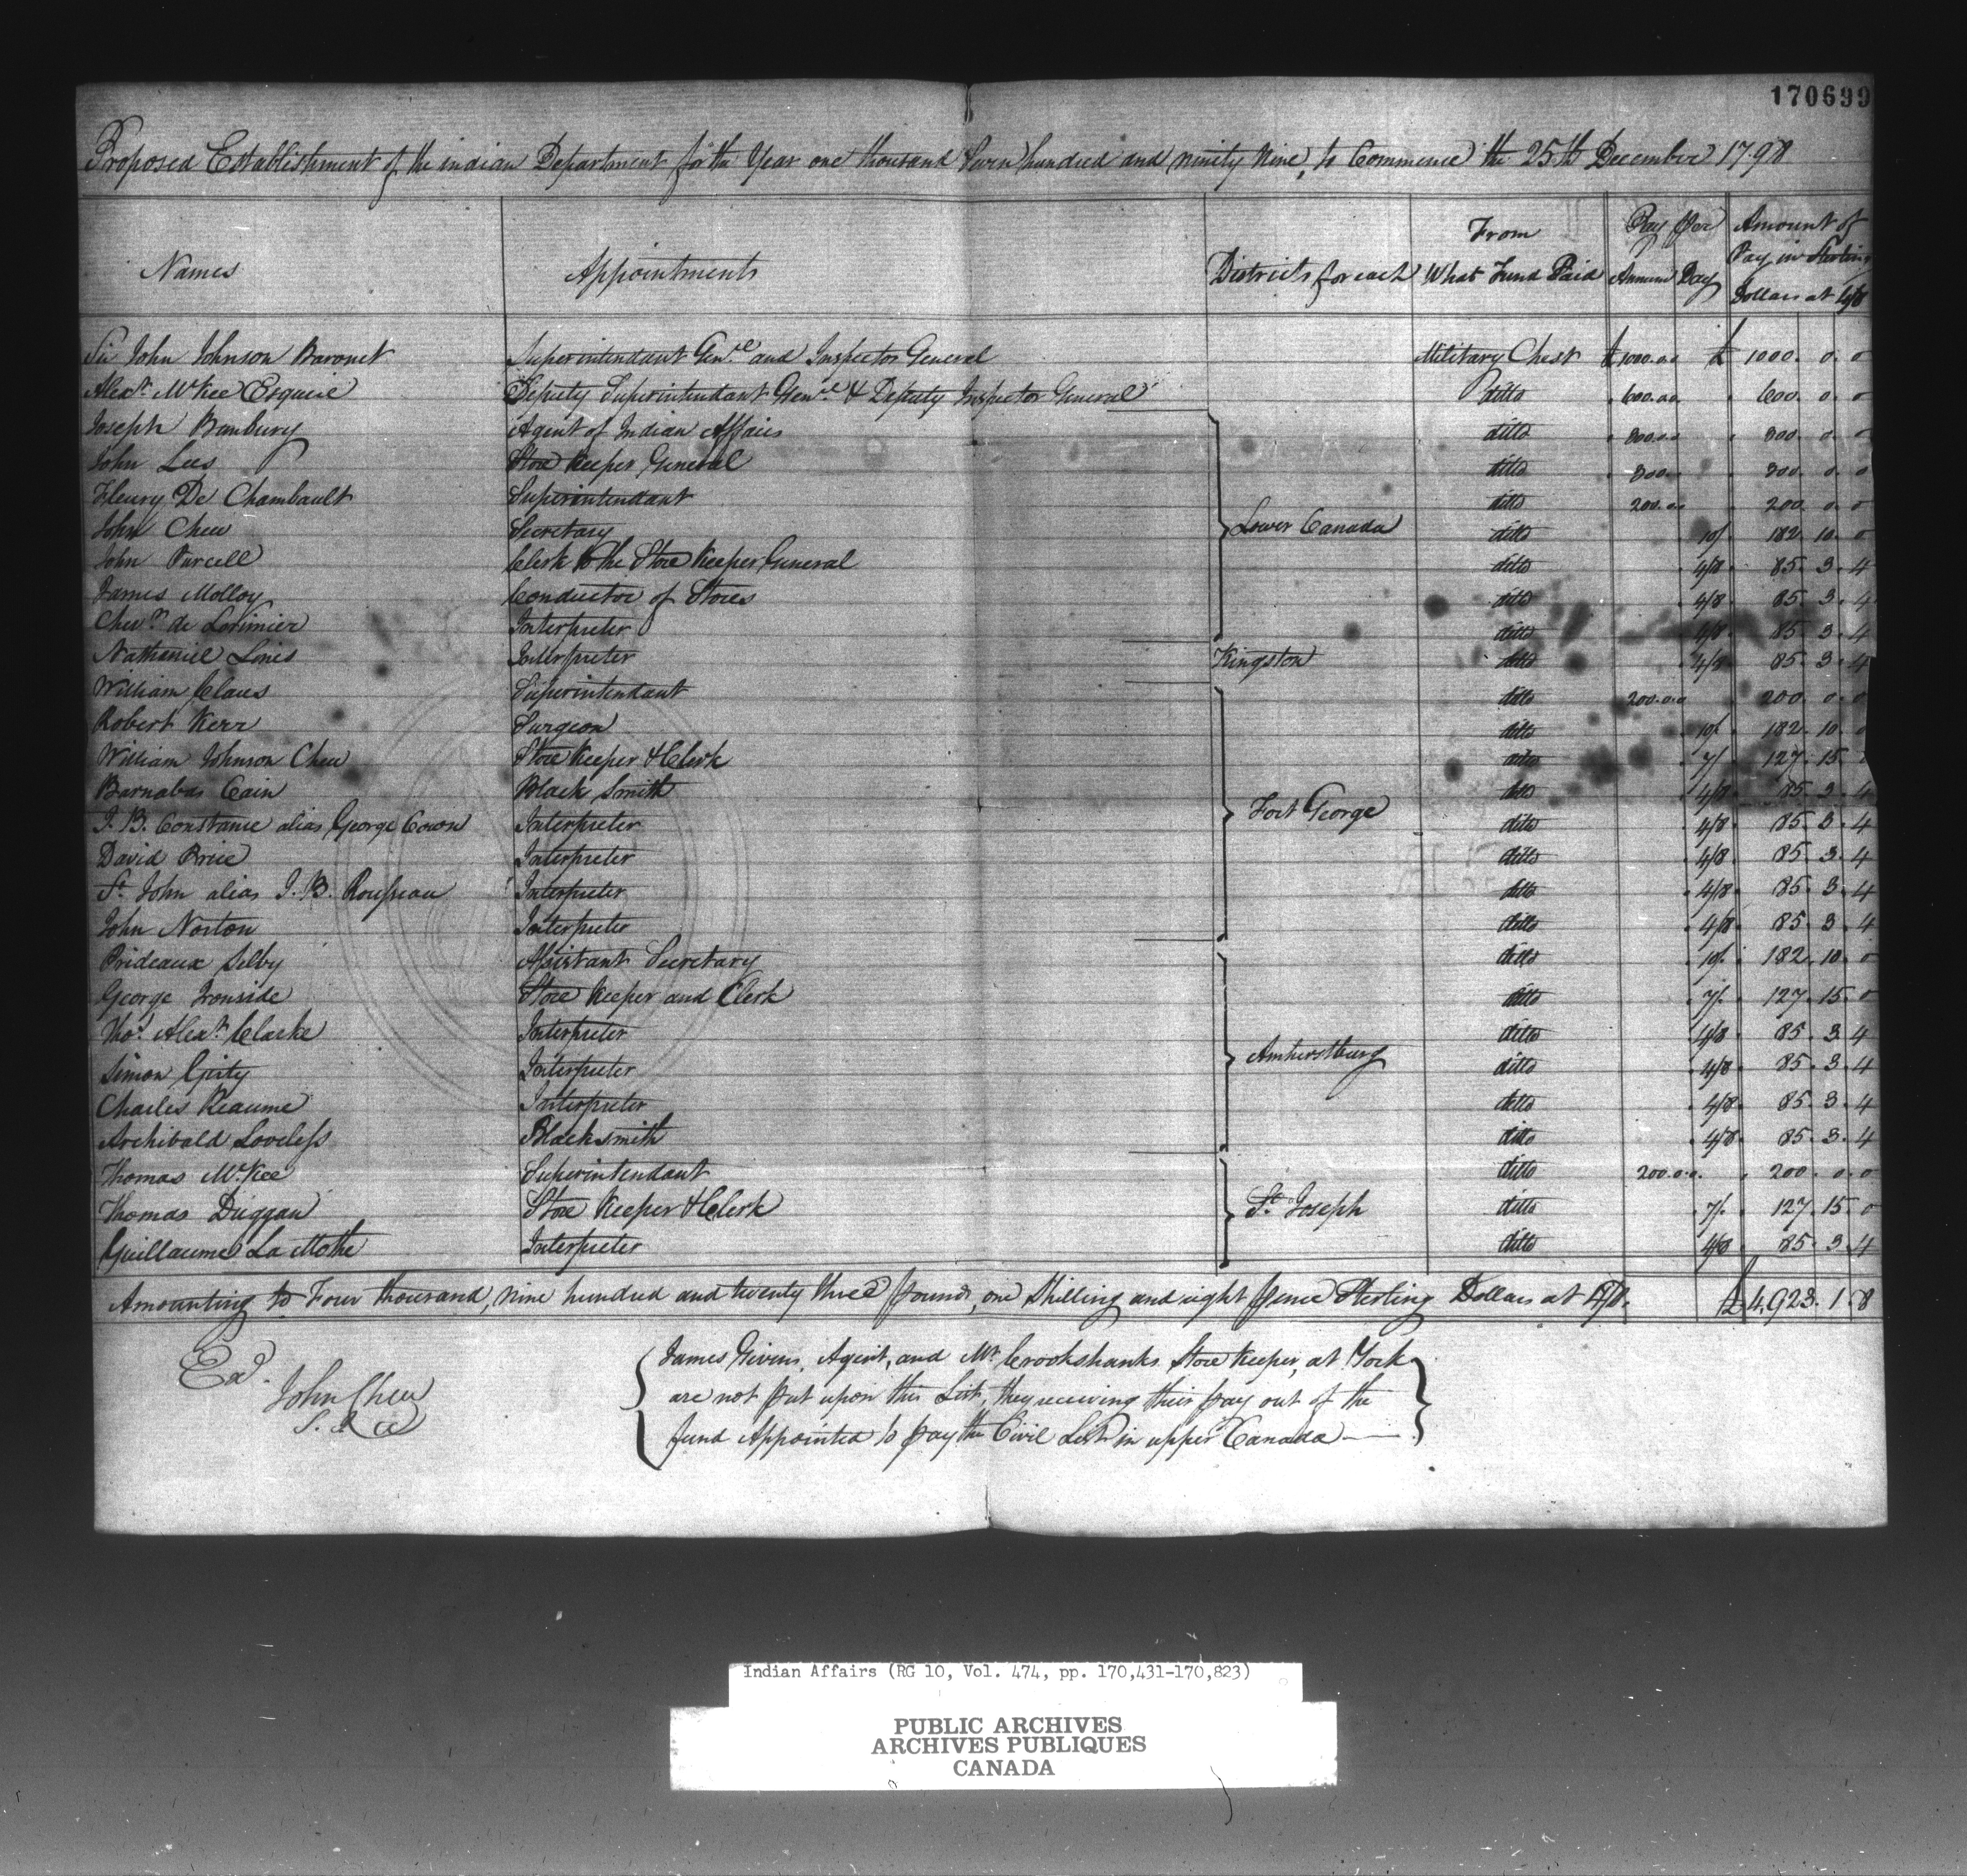 170699
Proposed Establishment of the indian Department for the Year one thousand Seven hundred and ninety Nine, to Commence the 25th December 1798
Names Appointments Districts for each From What Fund Paid Pay per Annum Day Amount of Pay in Sterling Dollars at 4/8
Sir John Johnson Baronet Superintendant Genl. and Inspector General Military Chest £1000.0.0 £ 1000. 0. 0
Alexr. McKee Esquire Deputy Superintendant Genl. & Deputy Inspector General ditto 600.0.0 600. 0. 0
Joseph Bambury Agent of Indian Affairs ditto 300.0.0 300. 0. 0
John Lees Store Keeper General ditto 300.0.0 300. 0. 0
Fleury De Chambault Superintendant ditto 200.0.0 200. 0. 0
John Chew Secretary Lower Canada ditto 10/ 182. 10. 0
John Purcell Clerk to the Store Keeper General ditto 4/8 85. 3. 4
James Molloy Conductor of Stores ditto 4/8 85. 3. 4
Chevr. de Lorimier Interpreter ditto 4/8 85. 3. 4
Nathaniel Lines Interpreter Kingston ditto 4/8 85. 3. 4
William Claus Superintendant ditto 200.0.0 200. 0. 0
Robert Kerr Surgeon ditto 10/. 182. 10. 0
William Johnson Chew Store Keeper & Clerk ditto 7/ 127. 15.
Barnabas Cain Black Smith ditto 4/8 85. 3. 4
J. B. Constame alias George Cown Interpreter Fort George ditto 4/8 85. 3. 4
David Price Interpreter ditto 4/8 85. 3. 4
St. John alias J. B. Rousseau Interpreter ditto 4/8 85. 3. 4
John Norton Interpreter ditto 4/8 85. 3. 4
Prideaux Selby Assistant Secretary ditto 10/. 182. 10. 0
George Ironside Store Keeper and Clerk ditto 7/. 127. 15. 0
Thos. Alexr. Clarke Interpreter ditto 4/8 85. 3. 4
Simon Girty Interpreter Amherstburg ditto 4/8 85. 3. 4
Charles Reaume Interpreter ditto 4/8 85. 3. 4
Archibald Loveless Blacksmith ditto 4/8 85. 3. 4
Thomas McKee Superintendant ditto 200.0.0. 200. 0. 0
Thomas Duggan Store Keeper & Clerk St. Joseph ditto 7/. 127. 15. 0
Guillaume La Mothe Interpreter ditto 4/8 85. 3. 4
Amounting to Four thousand, nine hundred and twenty three pounds, one Shilling and eight pence Sterling Dollars at 4/8. £4,923. 1. 8
Exd.
John Chew
S. I. A
James Givins, Agent, and Mr. Crookshanks Store Keeper, at York
are not put upon this List, they receiving their pay out of the
fund Appointed to pay the Civil List in upper Canada
Indian Affairs (RG 10, Vol. 474, pp. 170,431-170,823)
PUBLIC ARCHIVES
ARCHIVES PUBLIQUES
CANADA